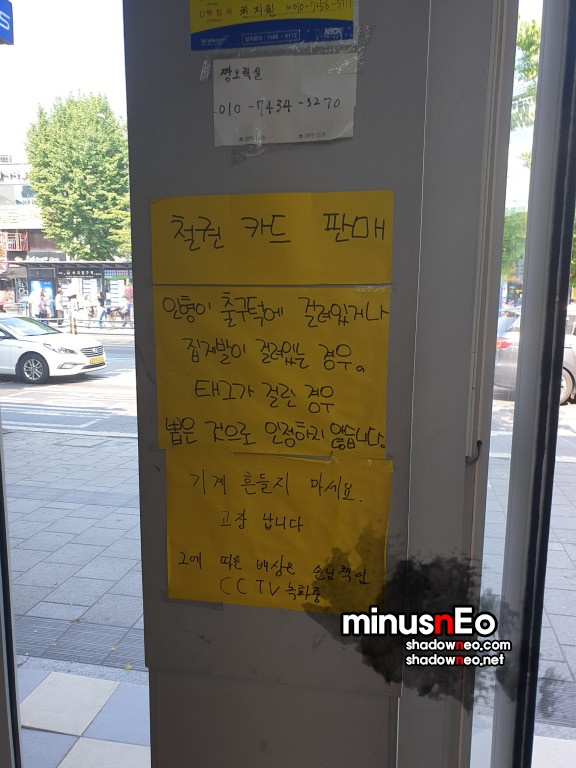 권지원 010-7256-5711
짱오락실
010-7434-5270
철권 카드 판매
인형이 출구턱에 걸려있거나
집게발이 걸려있는 경우。
태그가 걸린 경우
뽑은 것으로 인정하지 않습니다.
기계 흔들지 마세요.
고장 납니다
그에 따른 배상은 손님책임
CCTV 녹화중
minusnEo
shadowneo.com
shadowneo.net